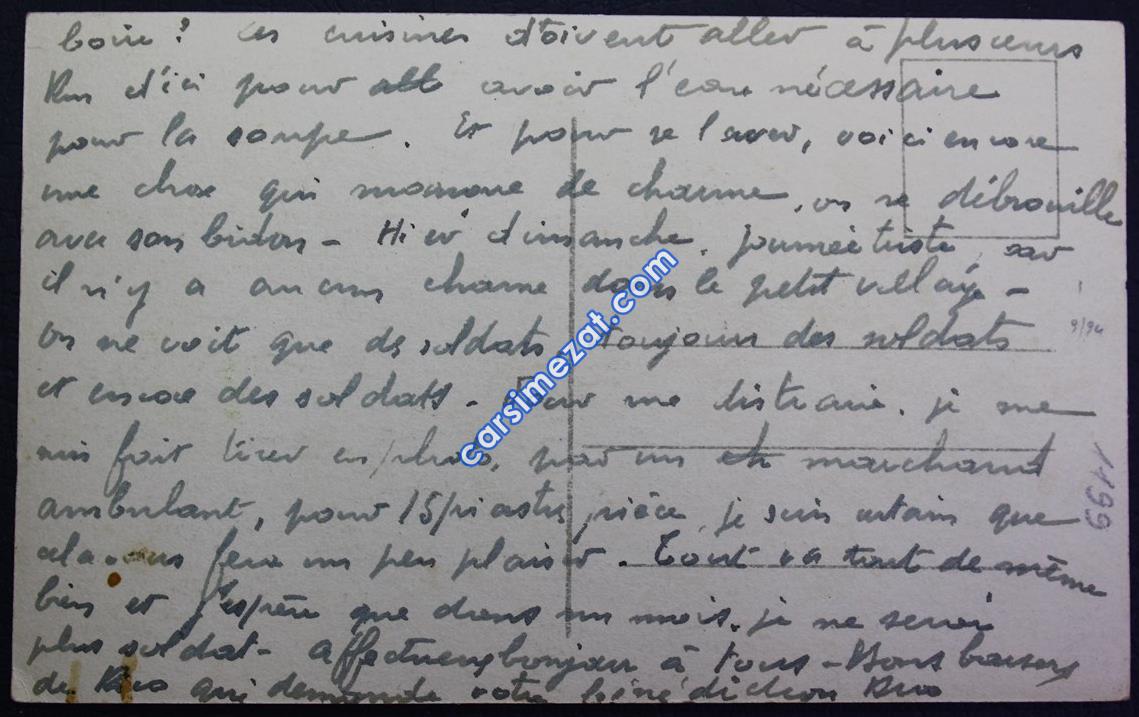 boire? Les cuisines doivent aller à plusieurs
Km d'ici pour all avoir l'eau nécessaire
pour la soupe. Et pour se laver, voici encore
une chose qui manque de charme, on se débrouille
avec son bidon - Hier dimanche, journée triste, car
il n'y a aucun charme dans le petit village -
on ne voit que des soldats, toujours des soldats
et encore des soldats - Pour me distraire, je me
suis fait tirer en photo, par un marchand
ambulant, pour 15 piastres pièce, je suis certain que
cela vous fera un peu plaisir. Tout va tout de même
bien et j'espère que dans un mois, je ne serai
plus soldat - Affectueux bonjour à tous - Bons baisers
de qui demande votre bénédiction
carsimezat.com
9/94
1199